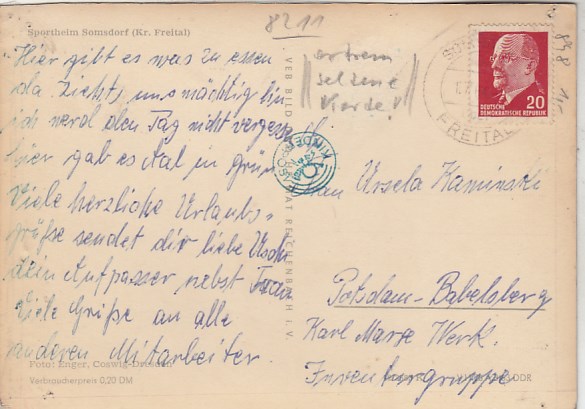 Sportheim Somsdorf (Kr. Freital)
8211
Hier gibt es was zu essen
da zieht's uns mächtig hin
ich werd den Tag nicht vergessen
hier gab es Aal in Grün
Viele herzliche Urlaubs-
grüße sendet dir liebe Usch
dein Aufpasser nebst Frau
Viele Grüße an alle
anderen Mitarbeiter.
Foto: Enger, Coswig-Dresden
Verbraucherpreis 0,20 DM
VEB BILD
REICHENBACH i. V.
extrem
seltene
Karte!
KINDERPOST
FREITAL
DEUTSCHE
DEMOKRATISCHE REPUBLIK
20
Ursela Kaminski
Potsdam-Babelsberg
Karl Marx Werk.
Inventurgruppe
DDR